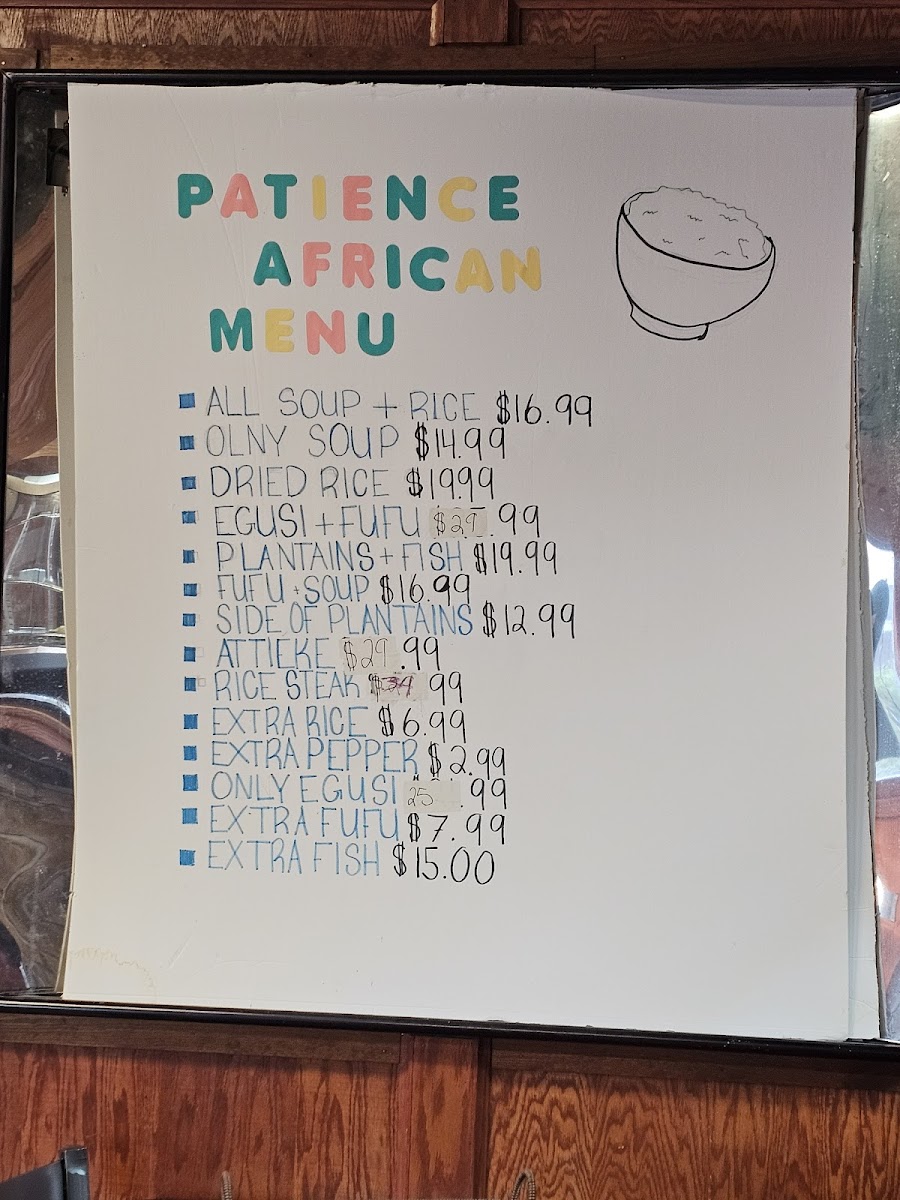 PATIENCE
AFRICAN
MENU
ALL SOUP + RICE $16.99
OLNY SOUP $14.99
DRIED RICE $19.99
EGUSI + FUFU $29.99
PLANTAINS + FISH $19.99
FUFU + SOUP $16.99
SIDE OF PLANTAINS $12.99
ATTIEKE $29.99
RICE STEAK $34.99
EXTRA RICE $6.99
EXTRA PEPPER $2.99
ONLY EGUSI 25.99
EXTRA FUFU $7.99
EXTRA FISH $15.00